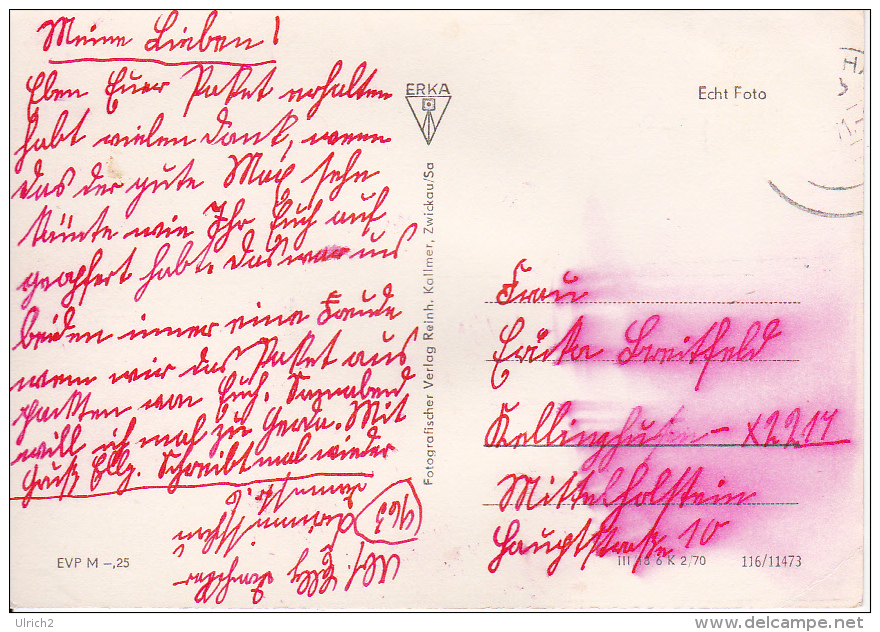 Meine Lieben!
Eben Euer Paket erhalten
habt vielen Dank, wenn
das der gute Max sehn
könnte wie Ihr Euch auf
geopfert habt. Das war uns
beiden immer eine Freude
wenn wir das Paket aus
packten von Euch. Sonnabend
will ich mal zu Gerda. Mit
Gruß Elly. Schreibt mal wieder
963
ERKA
Fotografischer Verlag Reinh. Kallmer, Zwickau/Sa
Echt Foto
Frau
Erika Breitfeld
Kellinghusen - X2217
Mittelholstein
Hauptstraße 10
EVP M -,25
III 18 6 K 2/70
116/11473
© Ulrich2
www.delcampe.net